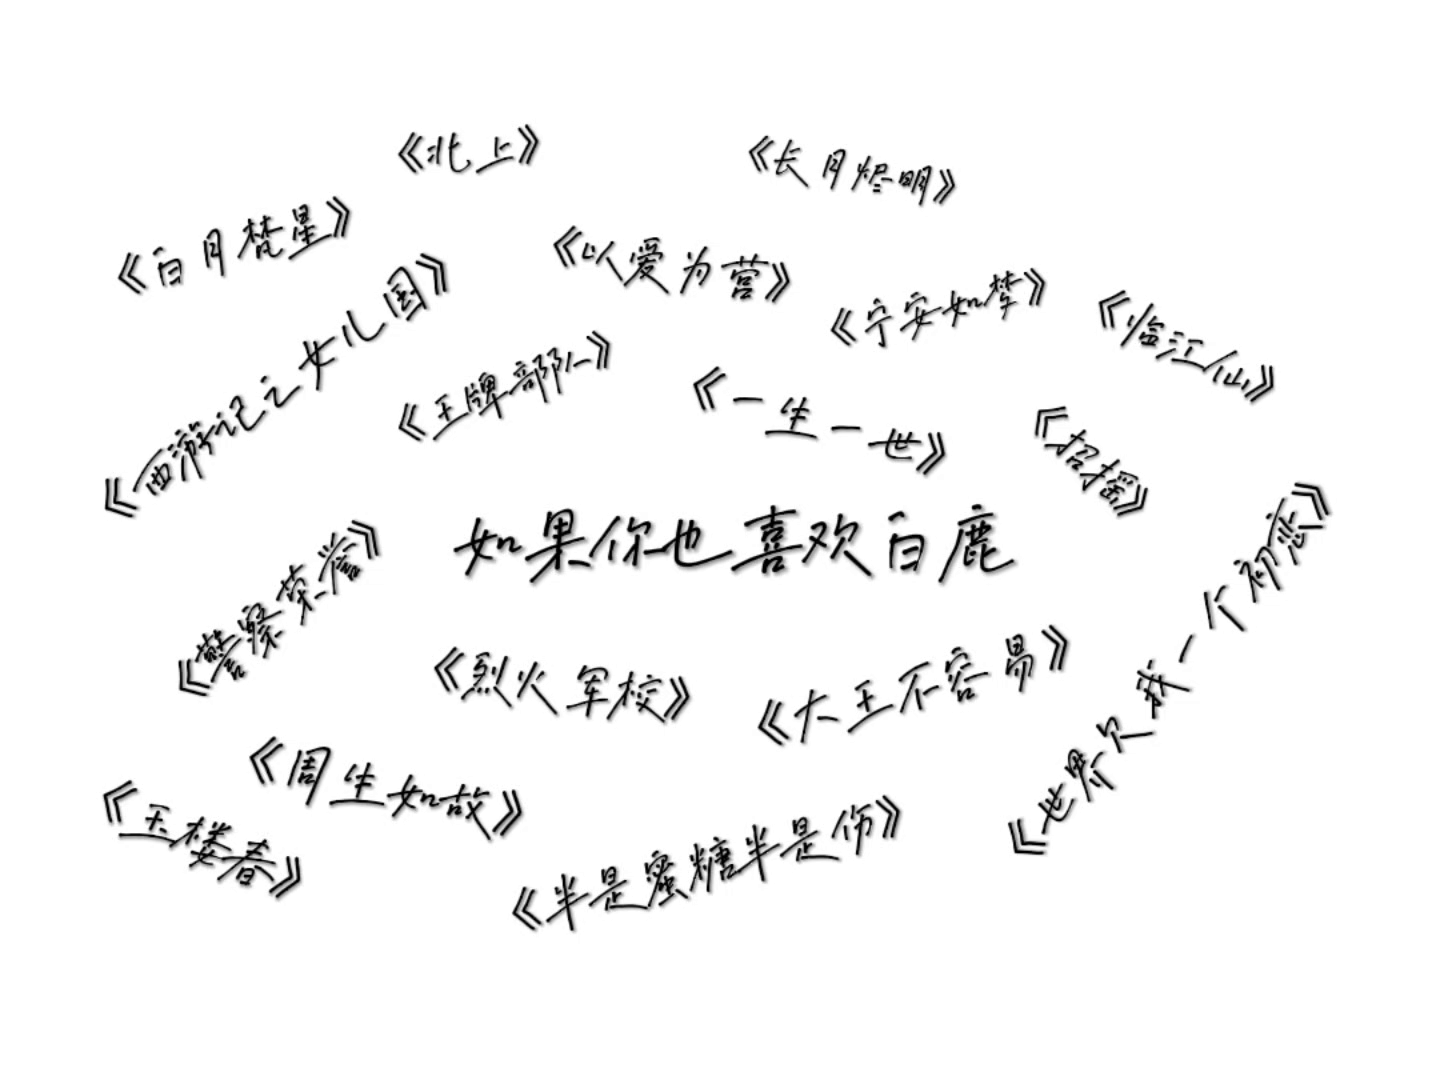 《北上》
《长月烬明》
《白月梵星》
《以爱为营》
《西游记之女儿国》
《宁安如梦》
《临江仙》
《王牌部队》
《一生一世》
《招摇》
如果你也喜欢白鹿
《警察荣誉》
《世界欠我一个初恋》
《烈火军校》
《大王不容易》
《周生如故》
《玉楼春》
《半是蜜糖半是伤》